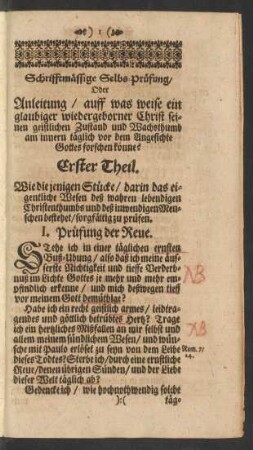 ) 1 (
Schrifftmässige Selbs-Prüfung/
Oder
Anleitung / auff was weise ein
glaubiger wiedergeborner Christ sei-
nen geistlichen Zustand und Wachsthumb
am innern täglich vor dem Angesichte
Gottes forschen könne?
Erster Theil.
Wie die jenigen Stücke / darin das ei-
gentliche Wesen deß wahren lebendigen
Christenthumbs und deß inwendigen Men-
schen bestehet / sorgfältig zu prüfen.
I. Prüfung der Reue.
STehe ich in einer täglichen ernsten
Buß-Ubung / also daß ich meine äus-
serste Nichtigkeit und tieffe Verderb-
nuß im Lichte Gottes je mehr und mehr em-
pfindlich erkenne / und mich deßwegen tieff
vor meinem Gott demüthige?
NB
Habe ich ein recht geistlich armes / leidtra-
gendes und göttlich betrübtes Hertz? Trage
ich ein hertzliches Mißfallen an mir selbst und
allem meinem sündlichem Wesen / und wün-
sche mit Paulo erlöset zu seyn von dem Leibe
dieses Todtes? Sterbe ich / durch eine ernstliche
Reue / denen übrigen Sünden / und der Liebe
dieser Welt täglich ab?
NB
Rom. 7/
24.
Gedencke ich / wie hochnothwendig solche
):( täg-